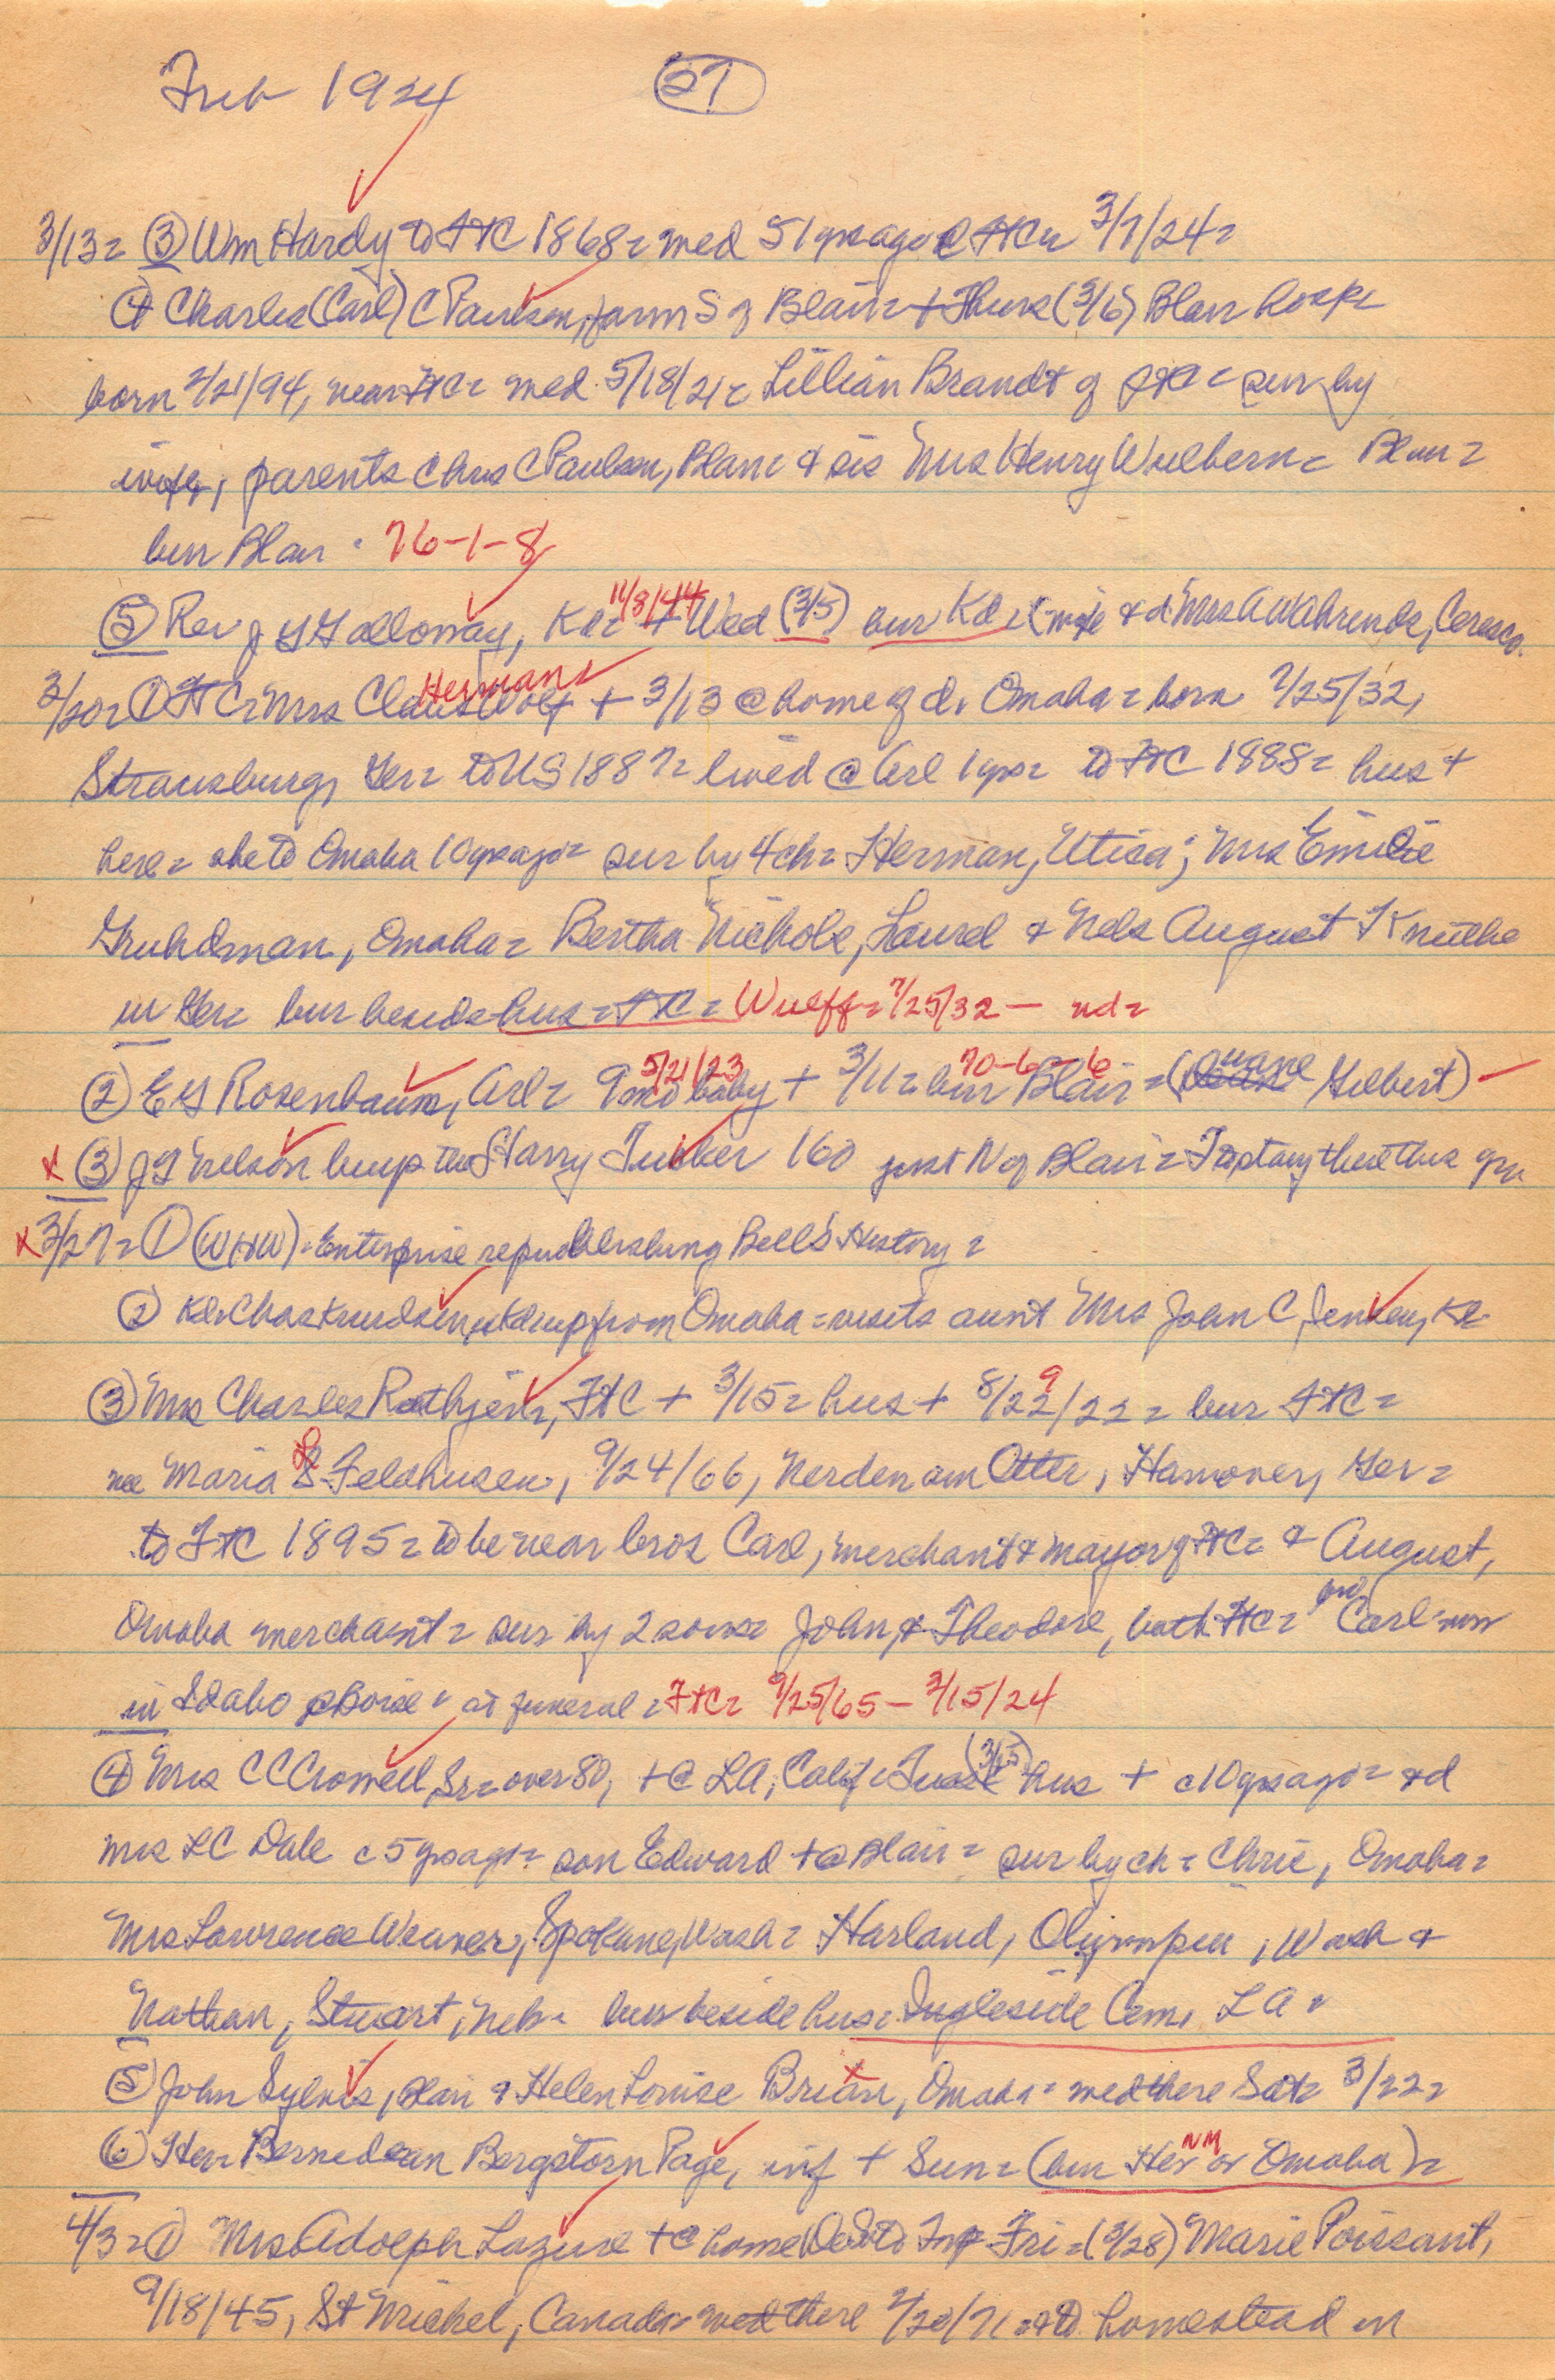 Trib 1924 (27)
3/13= (3) Wm Hardy to FtC 1868= med 51 yrs ago @ FtC 3/7/24=
(4) Charles (Carl) C Paulsen, farm S of Blair= + Thurs (3/6) Blair hosp=
born 2/21/94, near FtC= med 5/18/21= Lillian Brandt of FtC= sur by
wife, parents Chris C Paulsen, Blair & sis Mrs Henry Wulbern= Blair=
bur Blair. 76-1-8
(5) Rev J G Galloway, Kd= 11/8/44 + Wed (3/5) bur Kd= (wife & d Mrs A W Ahrends, Ceresco.
3/20= (1) FtC= Mrs Claus Wolf Herman + 3/13 @ home of d. Omaha= born 7/25/32,
Strausburg, Ger= to US 1887= lived @ Arl 1 yr= to FtC 1888= hus +
here= she to Omaha 10 yrs ago= sur by 4 ch= Herman, Utica; Mrs Emilie
Gruhdman, Omaha= Bertha Nichols, Laurel & Nels August Knuthe
in Ger= bur beside hus= FtC= Wulff= 7/25/32 — nd=
(2) E G Rosenbaum, Arl= 9 mo 5/21/23 baby + 3/11= bur 70-6-6 Blair= (Duane Gilbert) —
x (3) J G Nelson buys the Harry Tucker 160 just N of Blair= Tap tany there this yr
x 3/27= (1) (WHW)= Enterprise republishing Bell's History=
(2) Kd= Chas Knudsen, up from Omaha= visits aunt Mrs John C Jensen, Kd
(3) Mrs Charles Rathjen, FtC + 3/15= hus + 8/22 9/22= bur FtC=
nee Maria S Feldhusen, 9/24/66, Nerden am Otter, Hanover, Ger=
to FtC 1895= to be near bros Carl, merchant & mayor of FtC= & August,
Omaha merchant= sur by 2 sons= John & Theodore, both FtC= bro Carl now
in Idaho @ Boise= at funeral= FtC= 9/25/65 — 3/15/24
(4) Mrs C C Crowell, Sr= over 80, + @ LA, Calif= Tues (3/25) hus + c 10 yrs ago= & d
Mrs L C Dale c 5 yrs ago= son Edward + @ Blair= sur by ch= Chris, Omaha=
Mrs Lawrence Weaver, Spokane, Wash= Harland, Olympia, Wash &
Nathan, Stuart, Neb= bur beside hus= Ingleside Cem, LA=
(5) John Sylvis, Blair & Helen Louise Brian, Omaha= med there Sat= 3/22=
(6) Her= Bernedean Bergstorn Page, inf + Sun= (bur Her NM or Omaha)=
4/3= (1) Mrs Adolph Lazure + @ home DeSoto Twp Fri= (3/28) Marie Poissant,
9/18/45, St Michel, Canada= med there 2/20/71= & to homestead in